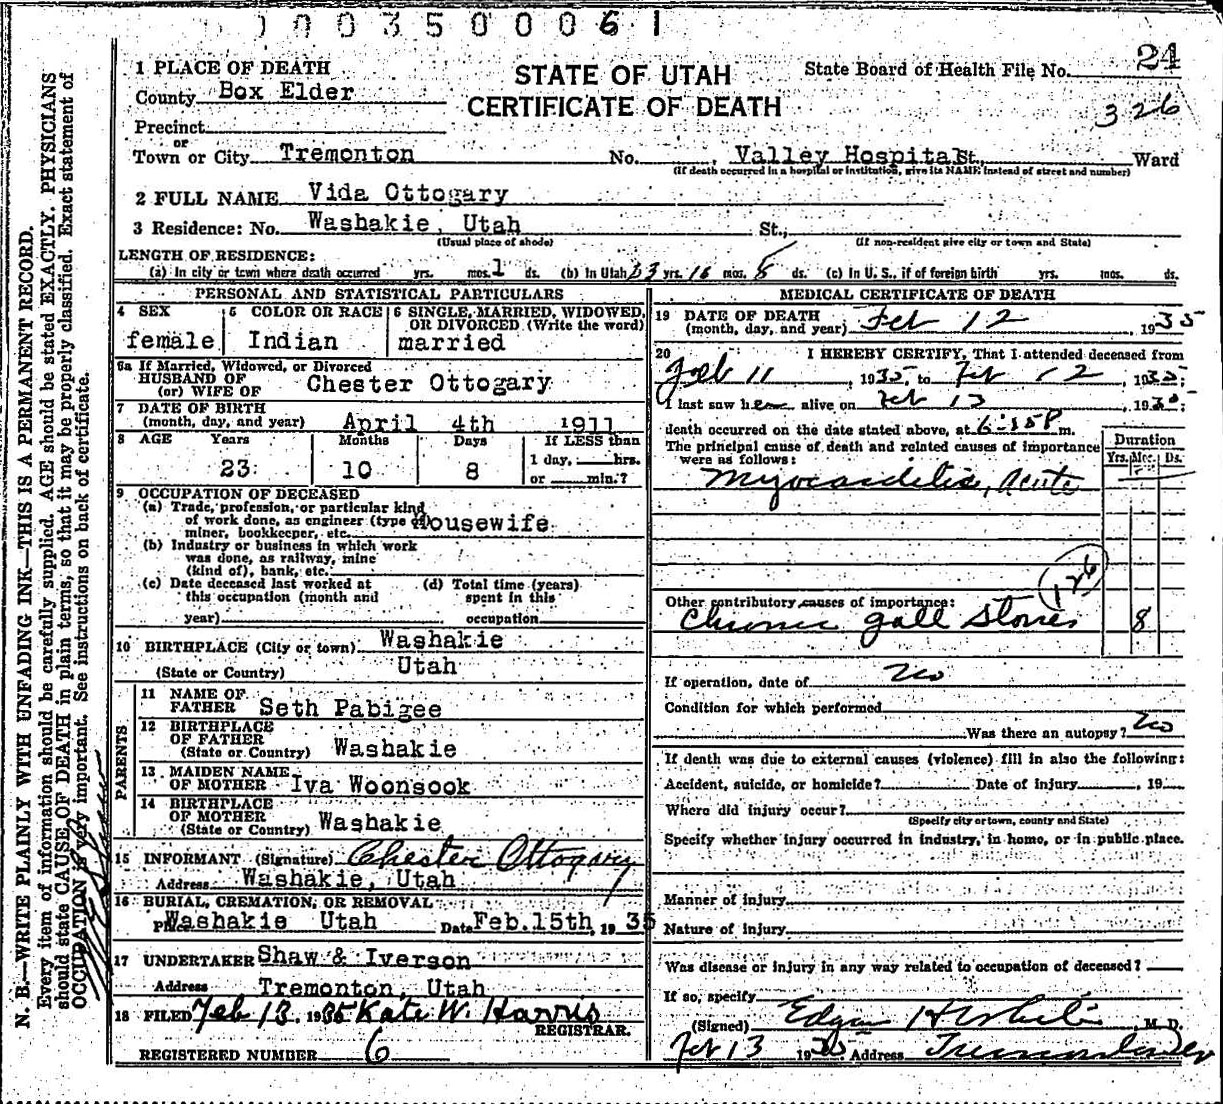 1003500061
24
1 PLACE OF DEATH
STATE OF UTAH
State Board of Health File No.
County Box Elder
CERTIFICATE OF DEATH
326
Precinct
or
Town or City Tremonton No. , Valley Hospital St., Ward
(If death occurred in a hospital or institution, give its NAME instead of street and number)
2 FULL NAME Vida Ottogary
3 Residence: No. Washakie, Utah St.,
(Usual place of abode) (If non-resident give city or town and State)
LENGTH OF RESIDENCE:
(a) In city or town where death occurred yrs. mos. 1 ds. (b) In Utah 23 yrs. 10 mos. 8 ds. (c) In U. S., if of foreign birth yrs. mos. ds.
PERSONAL AND STATISTICAL PARTICULARS
4 SEX
female
5 COLOR OR RACE
Indian
6 SINGLE, MARRIED, WIDOWED, OR DIVORCED (Write the word)
married
6a If Married, Widowed, or Divorced
HUSBAND OF
(or) WIFE OF Chester Ottogary
7 DATE OF BIRTH
(month, day, and year) April 4th 1911
8 AGE Years Months Days If LESS than
23 10 8 1 day, hrs.
or min.?
9 OCCUPATION OF DECEASED
(a) Trade, profession, or particular kind
of work done, as engineer (type of) Housewife
miner, bookkeeper, etc.
(b) Industry or business in which work
was done, as railway, mine
(kind of), bank, etc.
(c) Date deceased last worked at (d) Total time (years)
this occupation (month and spent in this
year) occupation
10 BIRTHPLACE (City or town) Washakie
(State or Country) Utah
PARENTS
11 NAME OF
FATHER Seth Pabigee
12 BIRTHPLACE
OF FATHER
(State or Country) Washakie
13 MAIDEN NAME
OF MOTHER Iva Woonsook
14 BIRTHPLACE
OF MOTHER
(State or Country) Washakie
15 INFORMANT (Signature) Chester Ottogary
Address Washakie, Utah
16 BURIAL, CREMATION, OR REMOVAL
Place Washakie Utah Date Feb.15th, 1935
17 UNDERTAKER Shaw & Iverson
Address Tremonton, Utah
18 FILED Feb 13, 1935 Kate W. Harris
REGISTRAR.
REGISTERED NUMBER 6
MEDICAL CERTIFICATE OF DEATH
19 DATE OF DEATH
(month, day, and year) Feb 12, 1935
20 I HEREBY CERTIFY, That I attended deceased from
Feb 11, 1935, to Feb 12, 1935;
I last saw her alive on Feb 13, 1935;
death occurred on the date stated above, at 6:15 P m.
The principal cause of death and related causes of importance
were as follows:
Duration
Yrs. Mos. Ds.
Myocarditis, acute
126
Other contributory causes of importance:
Chronic gall stones 8
If operation, date of No
Condition for which performed
Was there an autopsy? No
If death was due to external causes (violence) fill in also the following:
Accident, suicide, or homicide? Date of injury , 19
Where did injury occur?
(Specify city or town, county and State)
Specify whether injury occurred in industry, in home, or in public place.
Manner of injury
Nature of injury
Was disease or injury in any way related to occupation of deceased?
If so, specify
(Signed) Edgar H White M. D.
Feb 13 1935 Address Tremonton
N. B.—WRITE PLAINLY WITH UNFADING INK—THIS IS A PERMANENT RECORD.
Every item of information should be carefully supplied. AGE should be stated EXACTLY. PHYSICIANS
should state CAUSE OF DEATH in plain terms, so that it may be properly classified. Exact statement of
OCCUPATION is very important. See instructions on back of certificate.